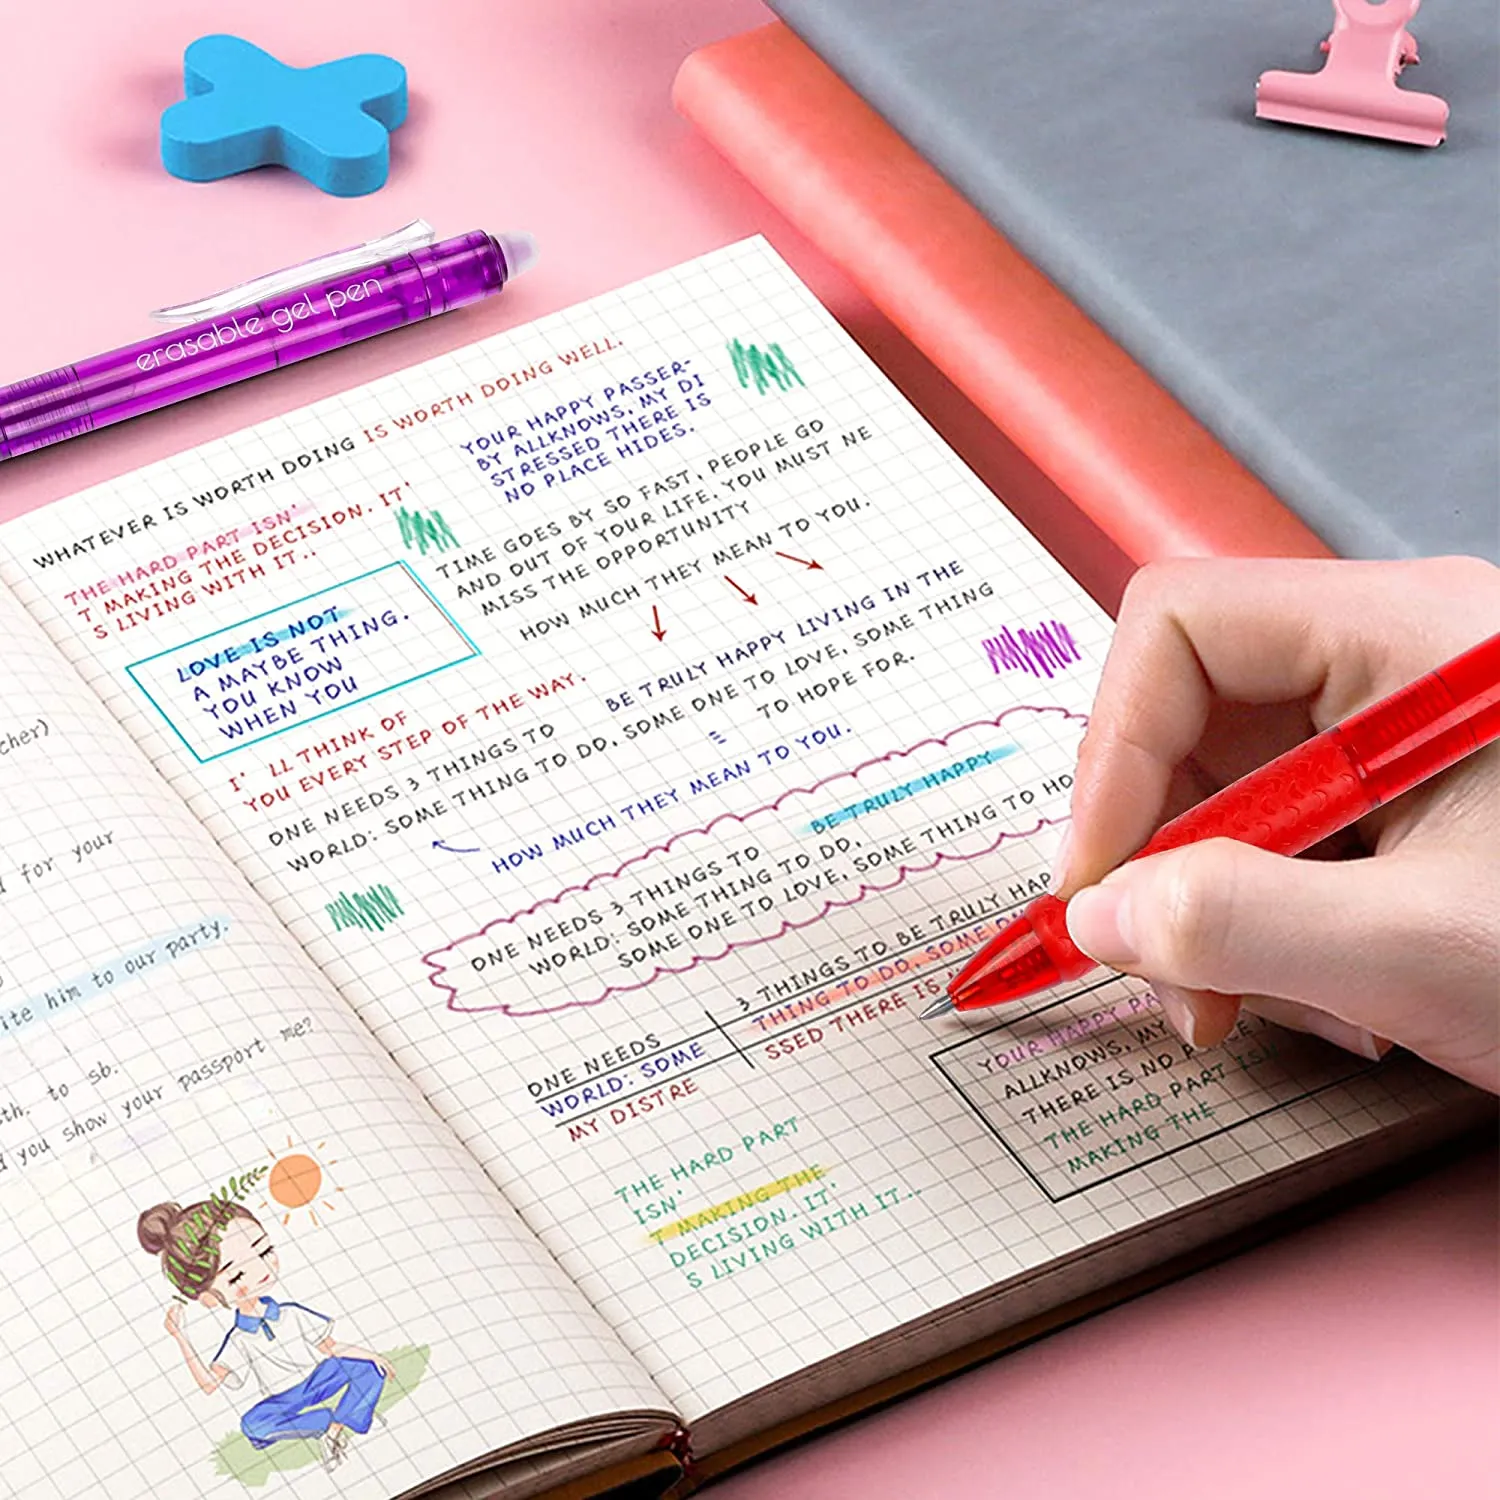 erasable gel pen
WHATEVER IS WORTH DOING IS WORTH DOING WELL.
THE HARD PART ISN'
T MAKING THE DECISION. IT'
S LIVING WITH IT..
YOUR HAPPY PASSER-
BY ALLKNOWS, MY DI
STRESSED THERE IS
NO PLACE HIDES.
TIME GOES BY SO FAST, PEOPLE GO
AND OUT OF YOUR LIFE. YOU MUST NE
MISS THE OPPORTUNITY
HOW MUCH THEY MEAN TO YOU.
LOVE IS NOT
A MAYBE THING.
YOU KNOW
WHEN YOU
I' LL THINK OF
YOU EVERY STEP OF THE WAY.
BE TRULY HAPPY LIVING IN THE
ONE NEEDS 3 THINGS TO
WORLD: SOME THING TO DO, SOME ONE TO LOVE, SOME THING
TO HOPE FOR.
HOW MUCH THEY MEAN TO YOU.
BE TRULY HAPPY
ONE NEEDS 3 THINGS TO
WORLD: SOME THING TO DO,
SOME ONE TO LOVE, SOME THING TO HO
ONE NEEDS
WORLD: SOME
MY DISTRE
3 THINGS TO BE TRULY HAP
THING TO DO, SOME ON
SSED THERE IS
YOUR HAPPY PA
ALLKNOWS, MY
THERE IS NO
THE HARD PART ISN
MAKING THE
THE HARD PART
ISN'
T MAKING THE
DECISION. IT'
S LIVING WITH IT..
cher)
for your
ite him to our party.
th. to sb.
you show your passport me?